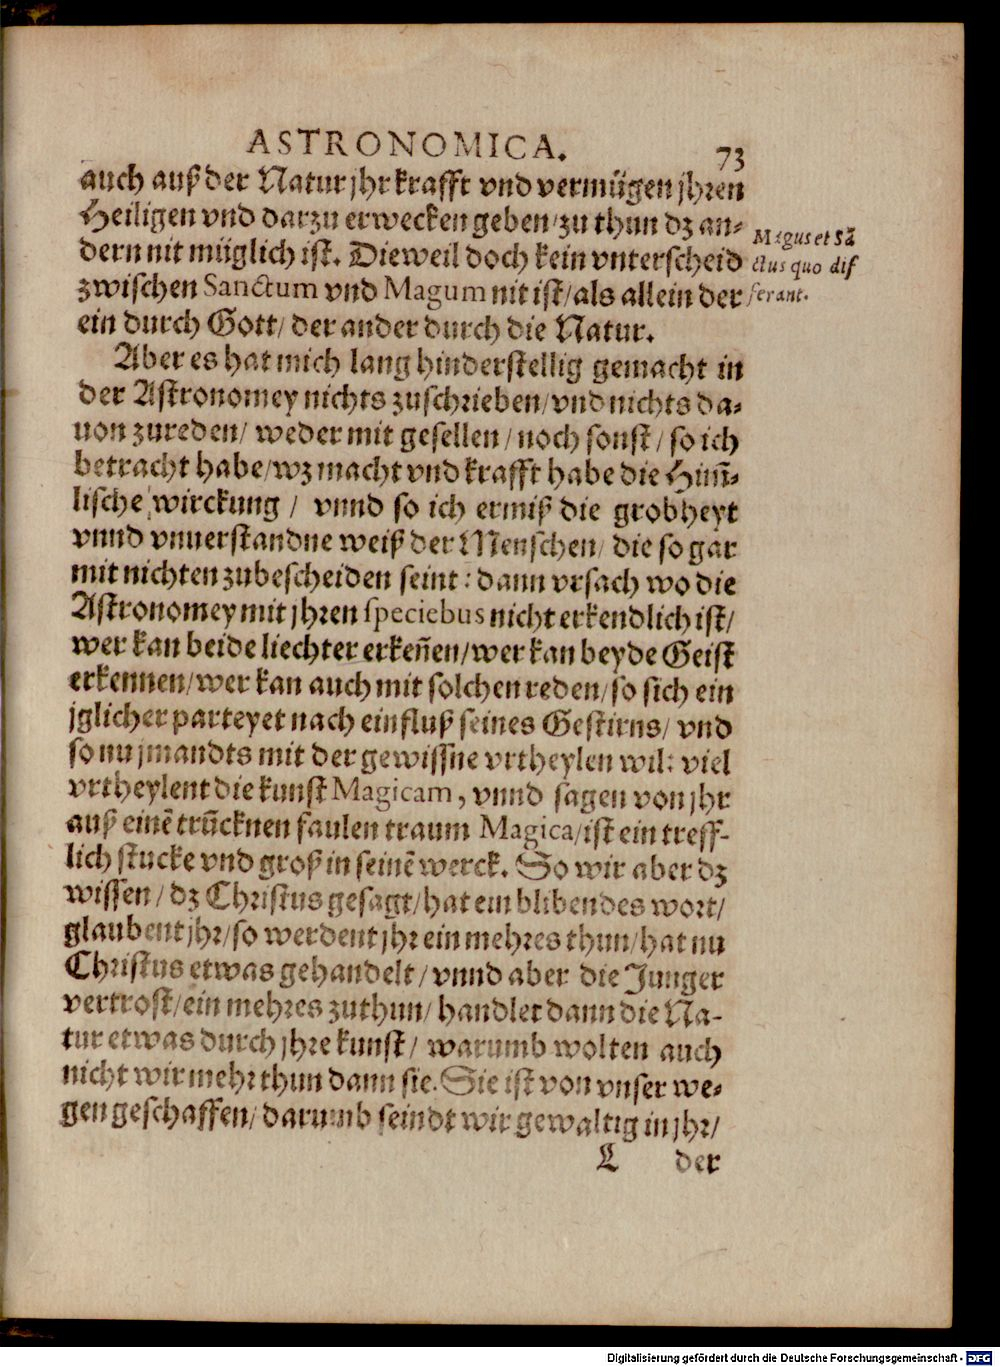 ASTRONOMICA. 73
auch auß der Natur jhr krafft vnd vermügen jhren
Heiligen vnd darzu erwecken geben/ zu thun dz an-
dern nit müglich ist. Dieweil doch kein vnterscheid
zwischen Sanctum vnd Magum nit ist/ als allein der
ein durch Gott/ der ander durch die Natur.
Magus et Sā
ctus quo dif
ferant.
Aber es hat mich lang hinderstellig gemacht in
der Astronomey nichts zuschrieben/ vnd nichts da-
uon zureden/ weder mit gesellen/ noch sonst/ so ich
betracht habe/ wz macht vnd krafft habe die Him̄-
lische wirckung/ vnnd so ich ermiß die grobheyt
vnnd vnuerstandne weiß der Menschen/ die so gar
mit nichten zubescheiden seint: dann vrsach wo die
Astronomey mit jhren speciebus nicht erkendlich ist/
wer kan beide liechter erkeñen/ wer kan beyde Geist
erkennen/ wer kan auch mit solchen reden/ so sich ein
jglicher parteyet nach einfluß seines Gestirns/ vnd
so nu jmandts mit der gewissne vrtheylen wil: viel
vrtheylent die kunst Magicam, vnnd sagen von jhr
auß einē trücknen faulen traum Magica/ ist ein treff-
lich stucke vnd groß in seinē werck. So wir aber dz
wissen/ dz Christus gesagt/ hat ein blibendes wort/
glaubent jhr/ so werdent jhr ein mehres thun/ hat nu
Christus etwas gehandelt/ vnnd aber die Junger
vertrost/ ein mehres zuthun/ handlet dann die Na-
tur etwas durch jhre kunst/ warumb wolten auch
nicht wir mehr thun dann sie. Sie ist von vnser we-
gen geschaffen/ darumb seindt wir gewaltig in jhr/
L der
Digitalisierung gefördert durch die Deutsche Forschungsgemeinschaft - DFG